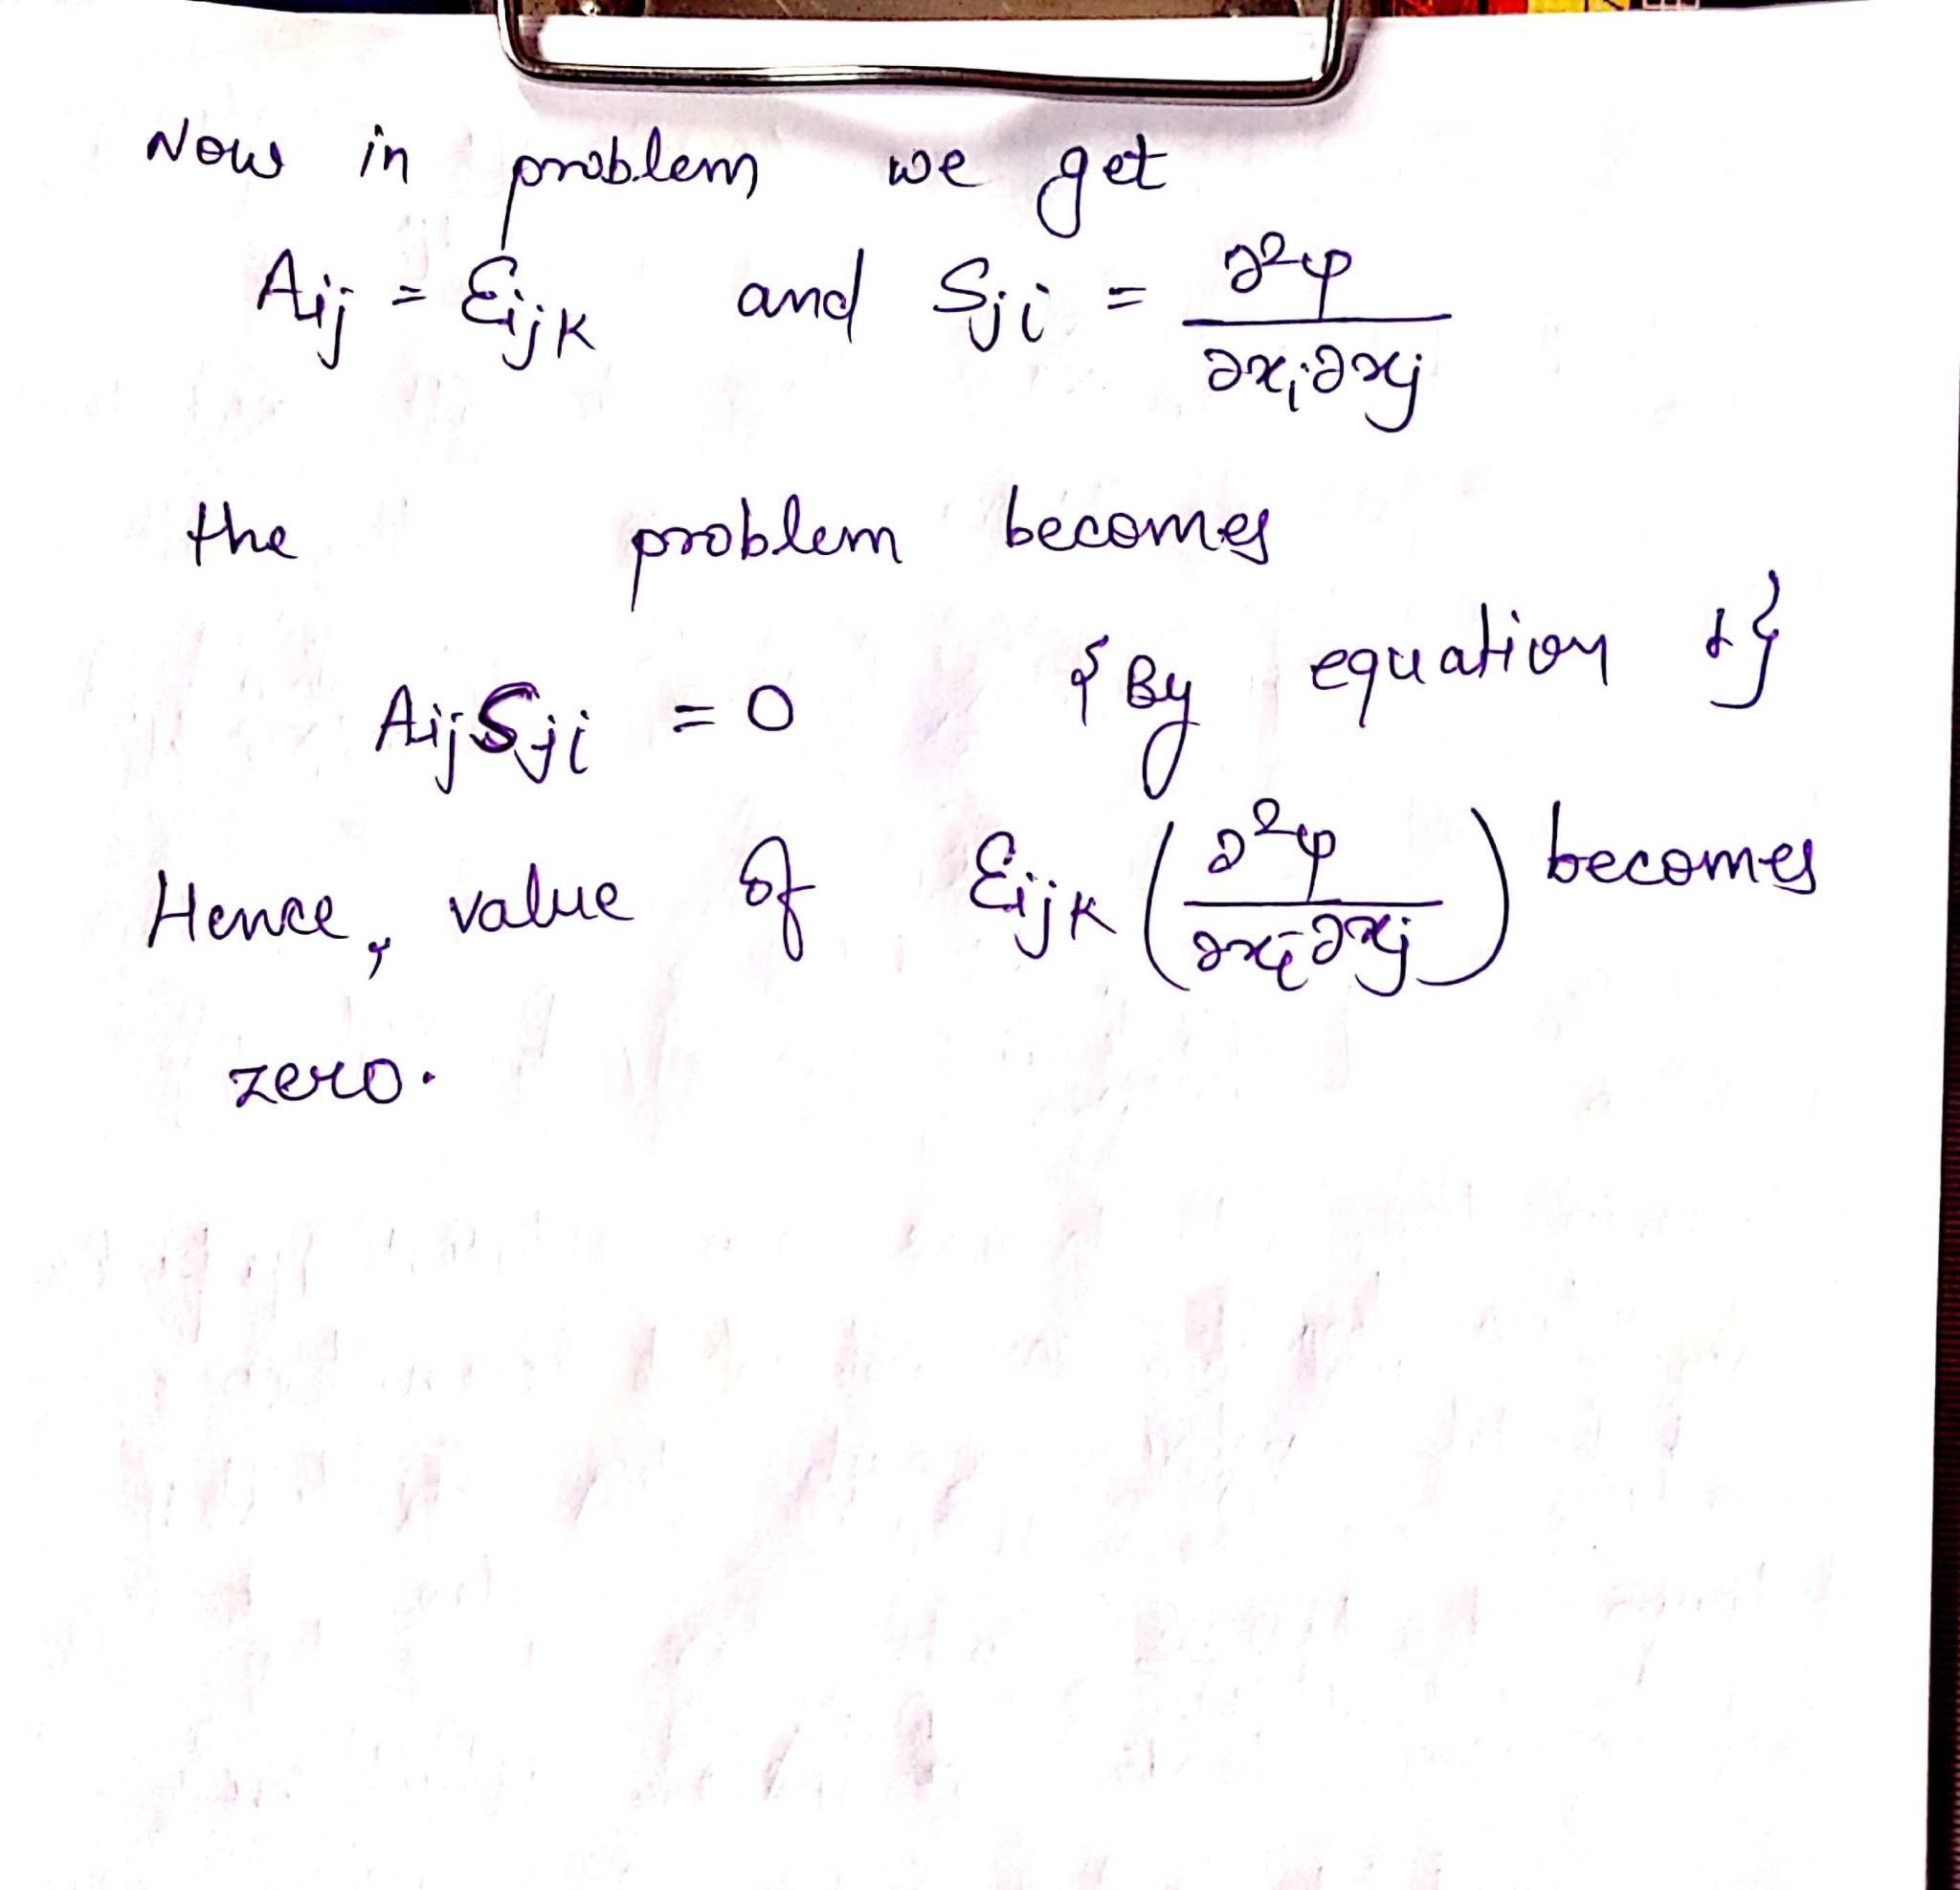 Now in problem we get
Aij = Ɛijk and Sji = ∂²φ / ∂xi∂xj
the problem becomes
AijSji = 0 {By equation 1}
Hence, value of Ɛijk (∂²φ / ∂xi∂xj) becomes
zero.